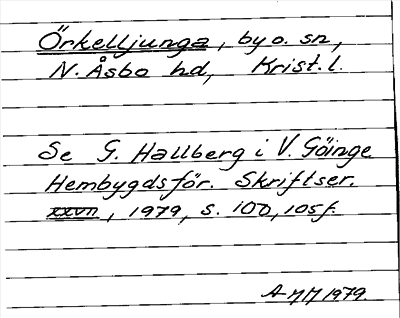 Örkelljunga, by o. sn,
N. Åsbo hd, Krist. l.
Se G. Hallberg i V. Göinge
Hembygdsför. Skriftser.
XXVII, 1979, s. 100, 105 f.
1979.